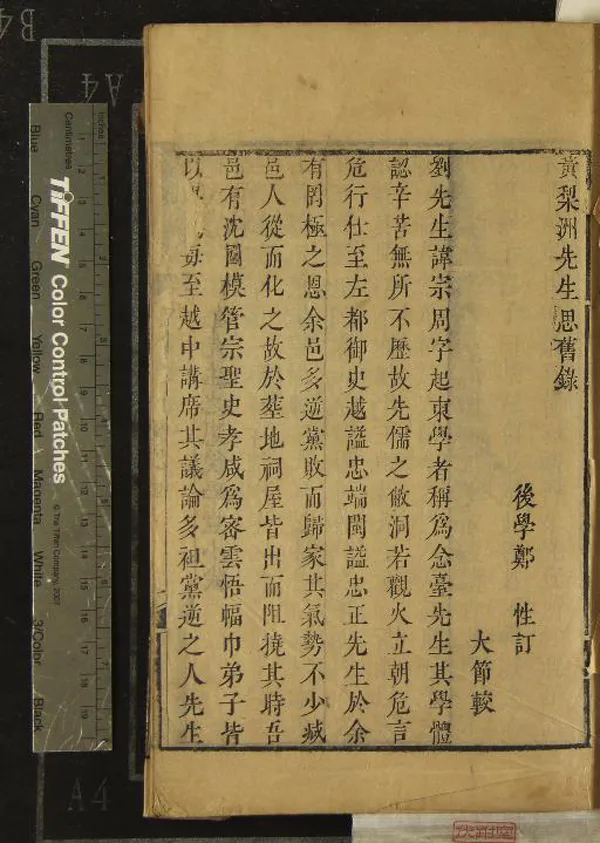 黃梨洲先生思舊錄
後學鄭 性訂
大節較
劉先生諱宗周字起東學者稱爲念臺先生其學體
認辛苦無所不歷故先儒之敝洞若觀火立朝危言
危行仕至左都御史越謚忠端閩謚忠正先生於余
有罔極之恩余邑多逆黨敗而歸家其氣勢不少減
邑人從而化之故於塟地祠屋皆出而阻撓其時吾
邑有沈國模管宗聖史孝咸爲密雲悟幅巾弟子皆
以 每至越中講席其議論多袒黨逆之人先生
Inches
Centimetres
TIFFEN® Color Control Patches
© The Tiffen Company, 2007
Blue Cyan Green Yellow Red Magenta White 3/Color Black
1 2 3 4 5 6 7 8 9 10 11 12 13 14 15 16 17 18 19
B4
A4
A4